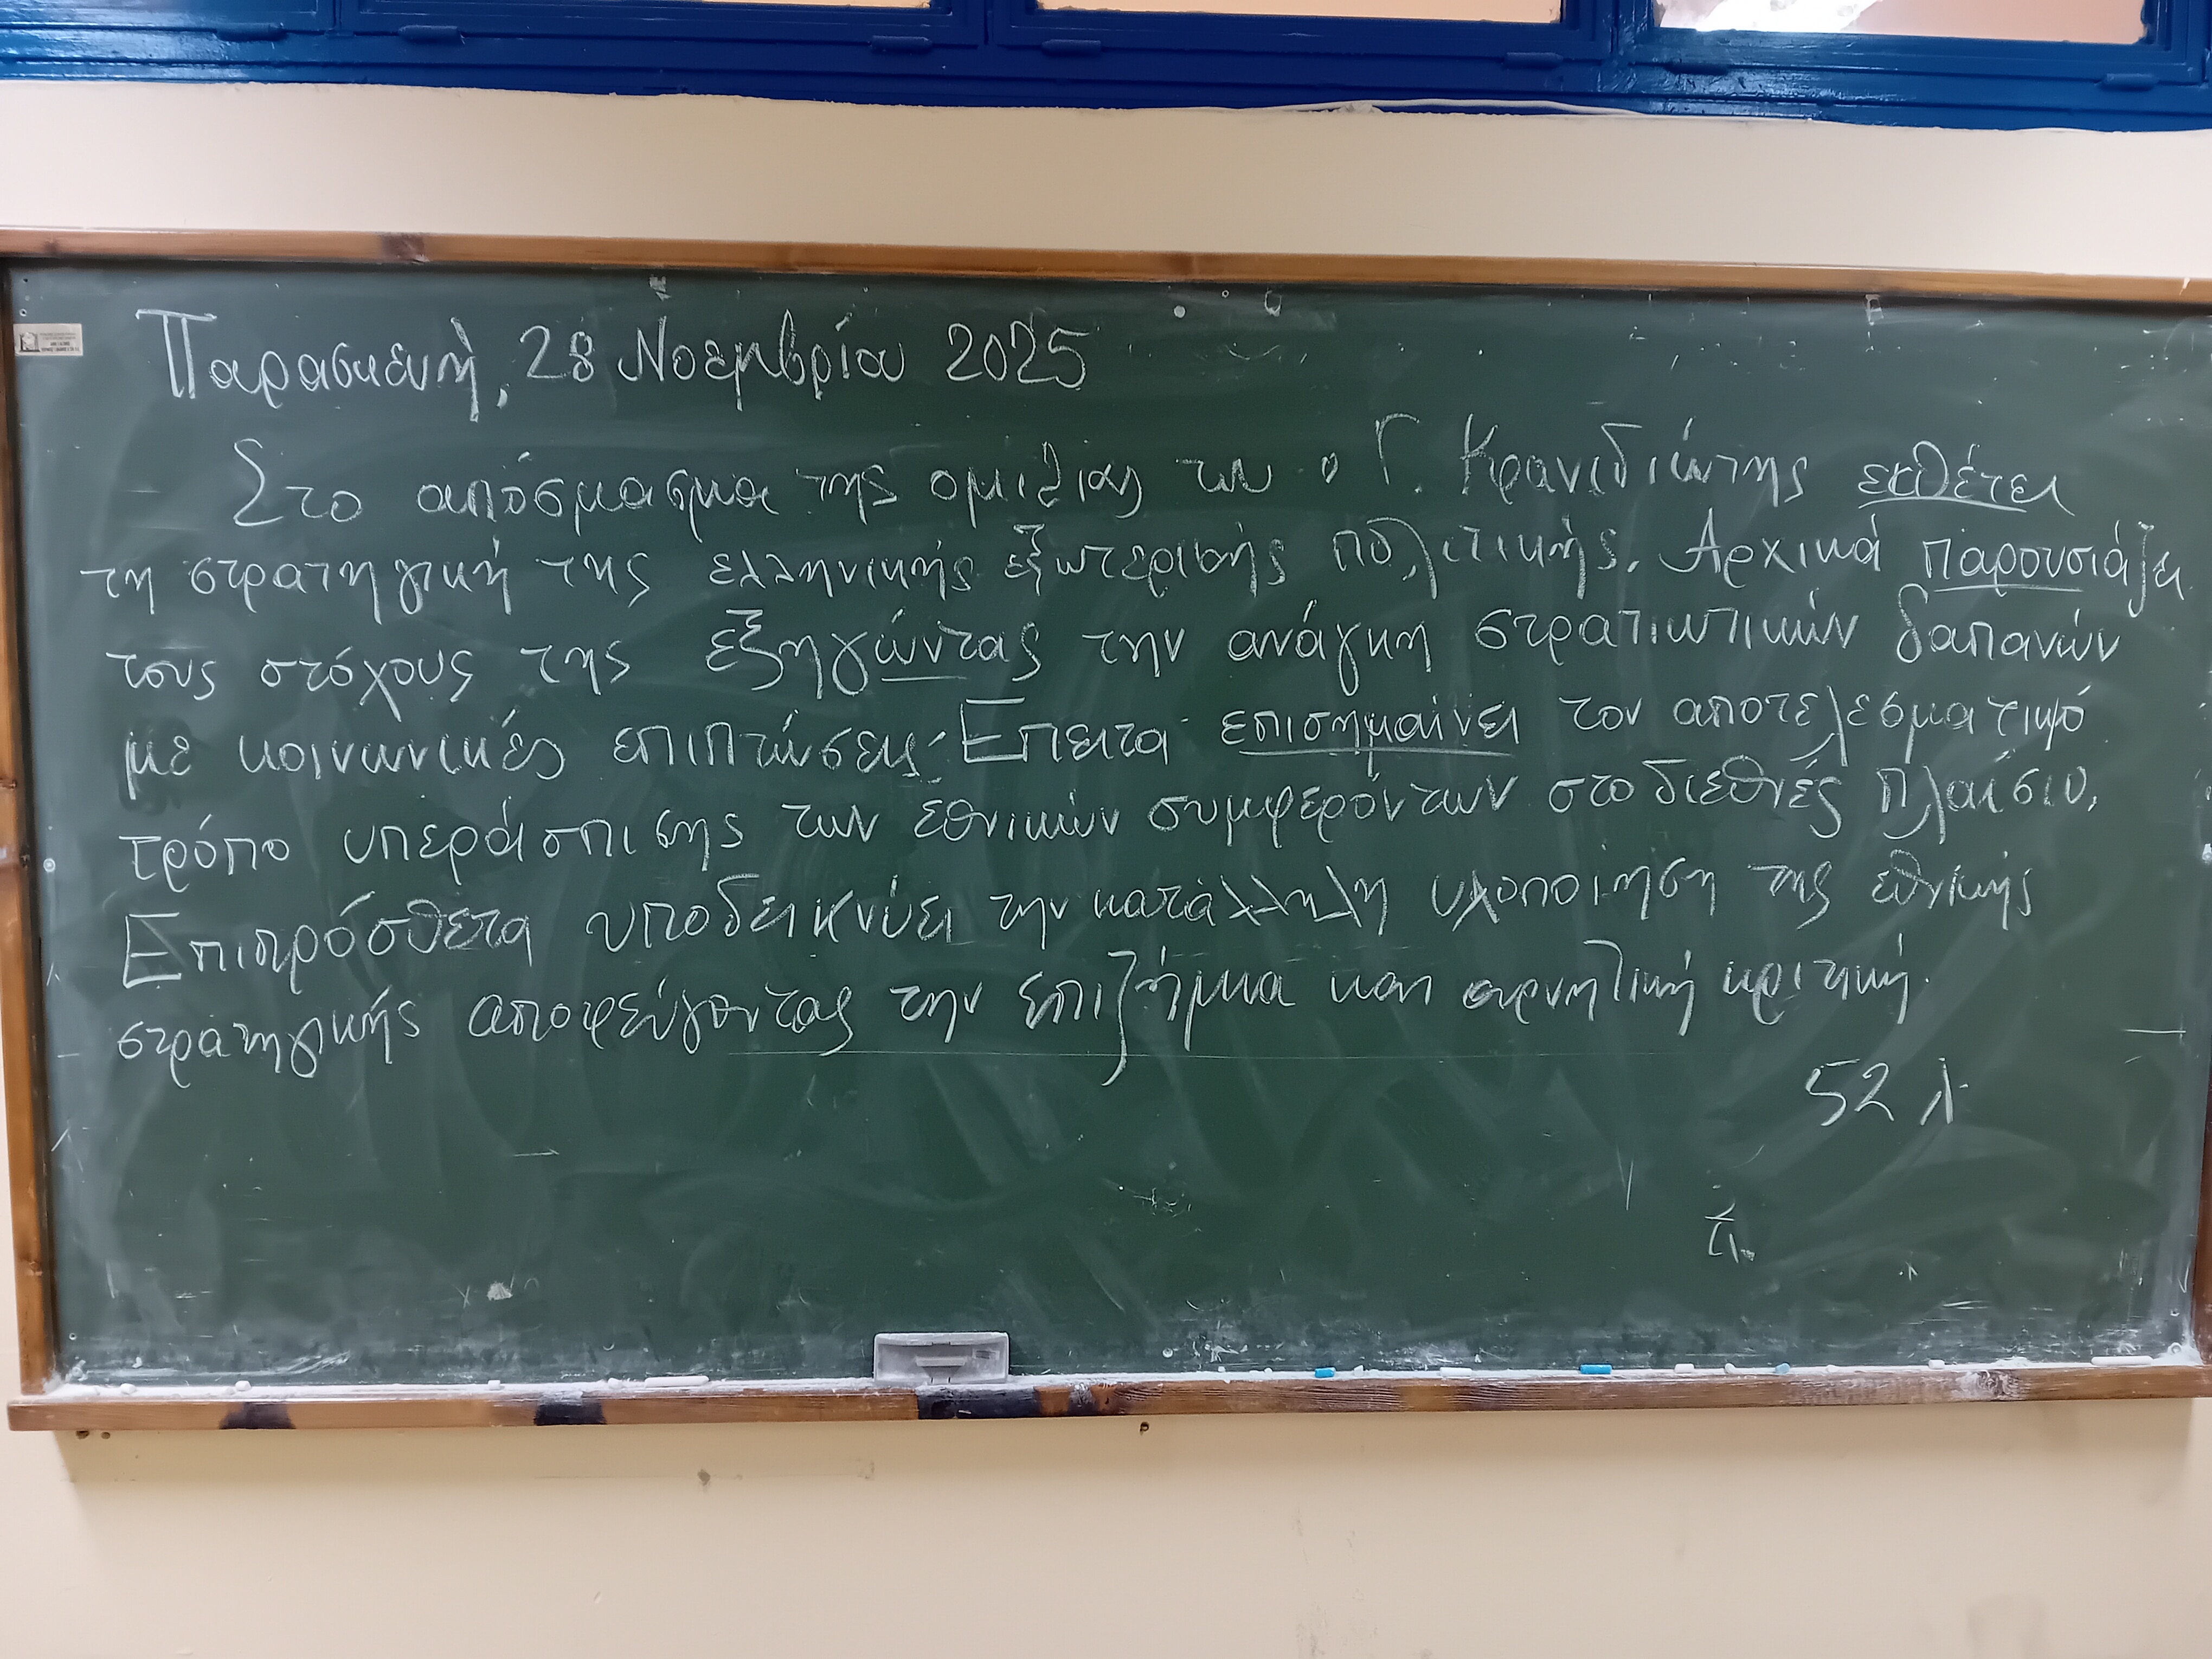 Παρασκευή, 28 Νοεμβρίου 2025
Στο απόσπασμα της ομιλίας του ο Γ. Κρανιδιώτης εκθέτει
τη στρατηγική της ελληνικής εξωτερικής πολιτικής. Αρχικά παρουσιάζει
τους στόχους της εξηγώντας την ανάγκη στρατιωτικών δαπανών
με κοινωνικές επιπτώσεις. Έπειτα επισημαίνει τον αποτελεσματικό
τρόπο υπεράσπισης των εθνικών συμφερόντων στο διεθνές πλαίσιο.
Επιπρόσθετα υποδεικνύει την κατάλληλη υλοποίηση της εθνικής
στρατηγικής αποφεύγοντας την επιζήμια και αρνητική κριτική.
52 λ